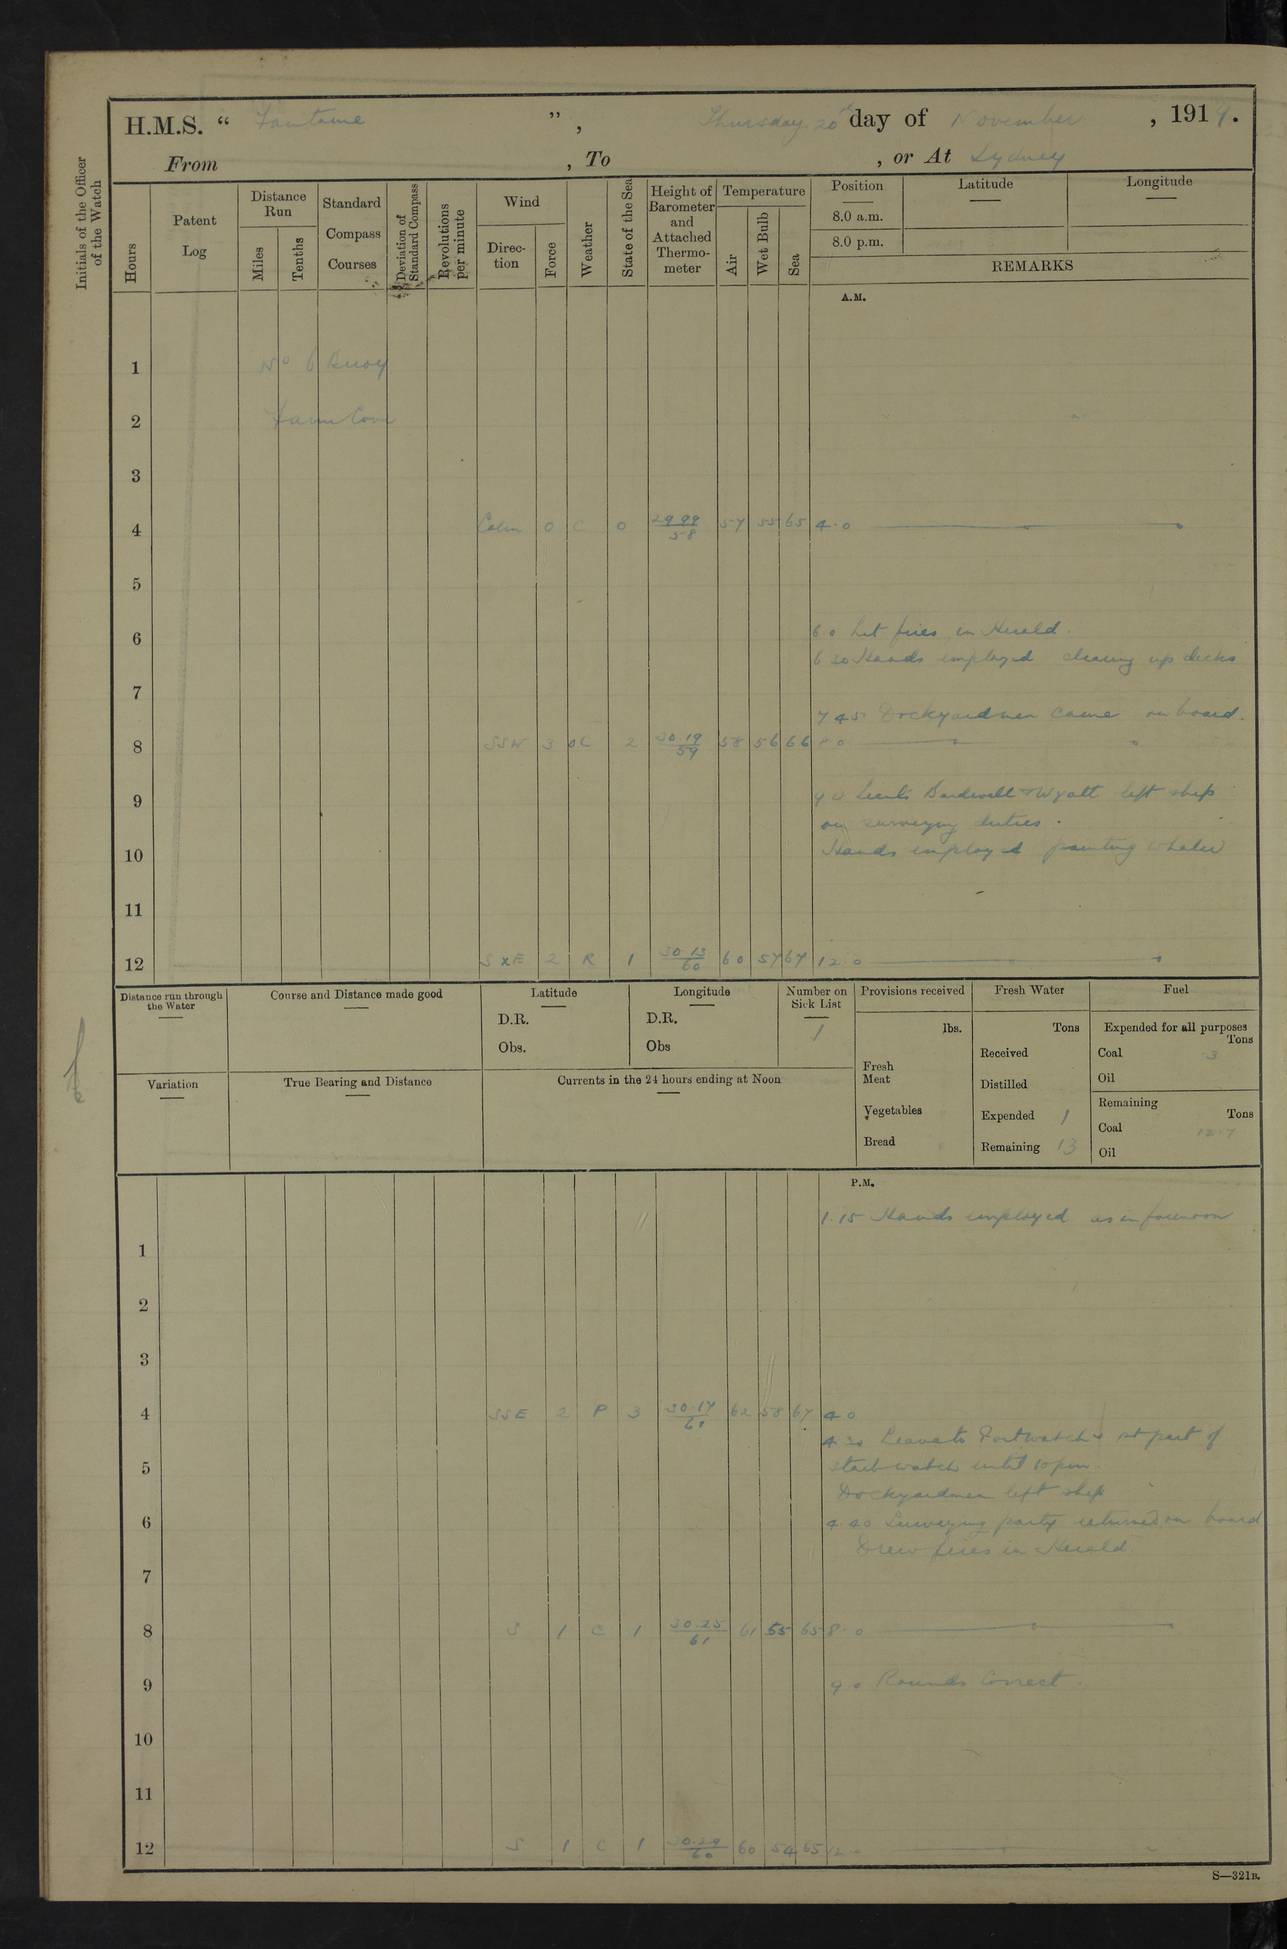 H.M.S. “ Fantome ”, Thursday 20th day of November, 1919.
From , To , or At Sydney
Initials of the Officer of the Watch
Hours
Patent Log
Distance Run
Miles
Tenths
Standard Compass Courses
Deviation of Standard Compass
Revolutions per minute
Wind
Direction
Force
Weather
State of the Sea
Height of Barometer and Attached Thermometer
Temperature
Air
Wet Bulb
Sea
Position
Latitude
Longitude
8.0 a.m.
8.0 p.m.
REMARKS
A.M.
1 No 6 Buoy
2 Farm Cove
3
4 Calm 0 C 0 29.99/58 57 55 65 4.0
5
6 6.0 Lit fires in Herald.
6.30 Hands employed clearing up decks
7
7.45 Dockyardmen came on board.
8 SSW 3 OC 2 30.19/59 58 56 66 8.0
9 9.0 Lieuts Bardwell & Wyatt left ship
on surveying duties.
10 Hands employed painting whaler
11
12 SxE 2 R 1 30.13/60 60 57 67 12.0
Distance run through the Water
Course and Distance made good
Latitude
D.R.
Obs.
Longitude
D.R.
Obs
Number on Sick List
1
Provisions received
lbs.
Fresh Meat
Vegetables
Bread
Fresh Water
Tons
Received
Distilled
Expended 1
Remaining 13
Fuel
Expended for all purposes
Tons
Coal 3
Oil
Remaining
Tons
Coal 127
Oil
Variation
True Bearing and Distance
Currents in the 24 hours ending at Noon
P.M.
1.15 Hands employed as in forenoon
1
2
3
4 SSE 2 P 3 30.17/60 62 58 67 4.0
4.30 Leave to Port watch & 1st part of
5 starb watch until 10 pm.
Dockyardmen left ship
6 4.40 Surveying party returned on board
Drew fires in Herald
7
8 S 1 C 1 30.25/61 61 55 65 8.0
9 9.0 Rounds Correct.
10
11
12 S 1 C 1 30.29/60 60 54 65 12.0
S—321B.